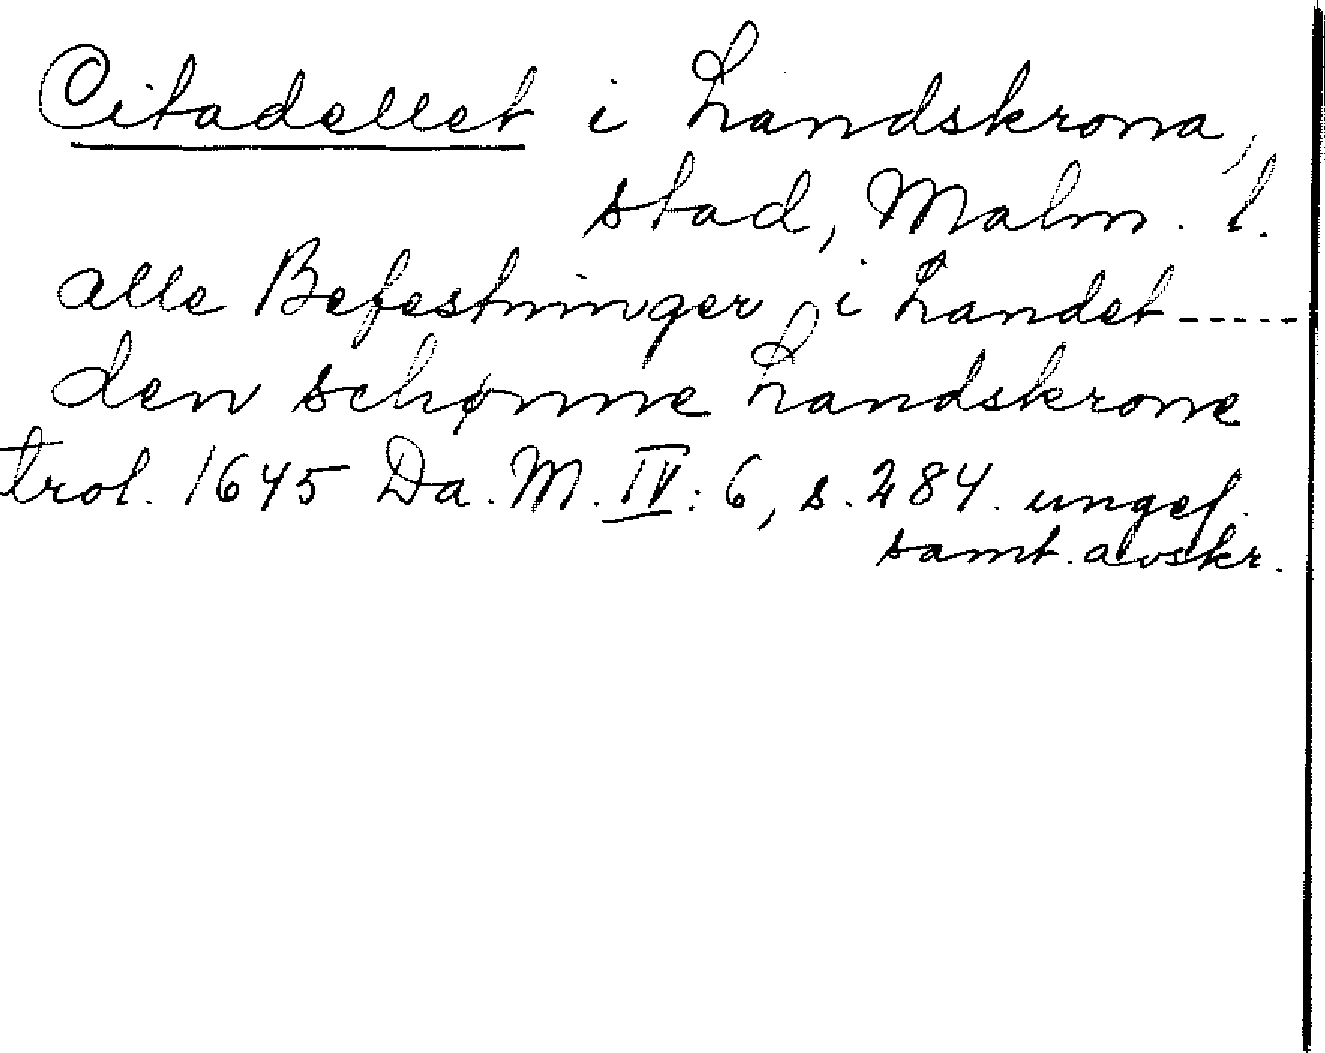 Citadellet i Landskrona,
stad, Malm. l.
alle Befestninger i Landet -----
den schønne Landskrone
trol. 1645 Da. M. IV: 6, s. 284. ungef.
samt. avskr.